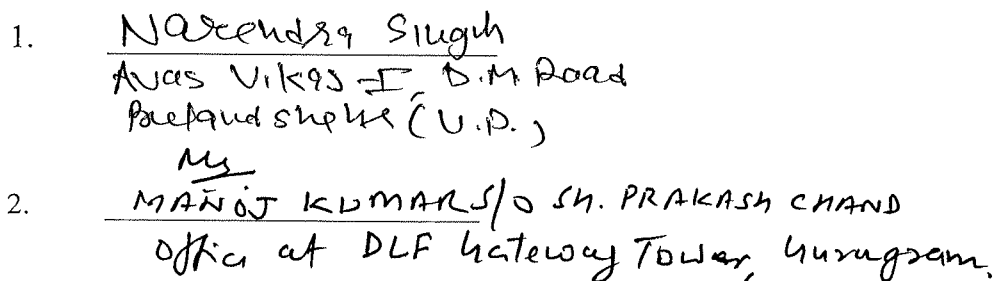 1. Narendra Singh
Avas Vikas-I, D.M Road
Bulandshehr (U.P.)
2. MANOJ KUMAR S/O SH. PRAKASH CHAND
Office at DLF Gateway Tower, Gurugram.